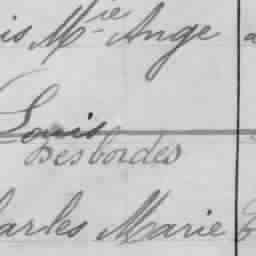 is Mie Ange
Louis
Desbordes
arles Marie